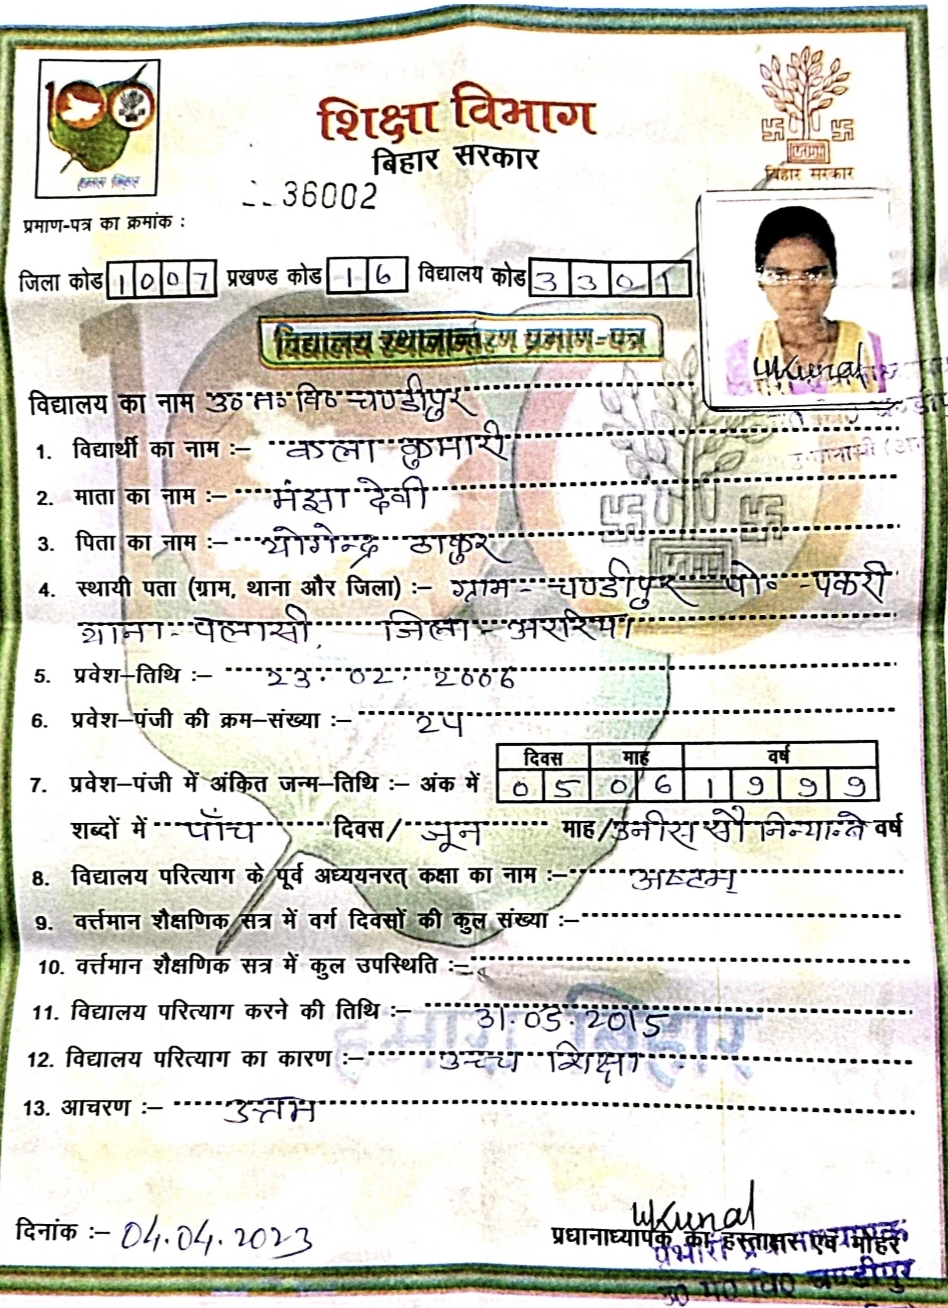 शिक्षा विभाग
बिहार सरकार
बिहार सरकार
36002
प्रमाण-पत्र का क्रमांक :
जिला कोड 1007 प्रखण्ड कोड 16 विद्यालय कोड 3301
विद्यालय स्थानान्तरण प्रमाण-पत्र
WKunal
विद्यालय का नाम उ० म० वि० चण्डीपुर
1. विद्यार्थी का नाम :– कला कुमारी
2. माता का नाम :– मंझा देवी
3. पिता का नाम :– योगेन्द्र ठाकुर
4. स्थायी पता (ग्राम, थाना और जिला) :– ग्राम - चण्डीपुर पो० - पकरी
थाना - पलासी, जिला - अररिया
5. प्रवेश–तिथि :– 23. 02. 2006
6. प्रवेश–पंजी की क्रम–संख्या :– 24
दिवस माह वर्ष
7. प्रवेश–पंजी में अंकित जन्म–तिथि :– अंक में 05 06 1999
शब्दों में पाँच दिवस/ जून माह/उनीस सौ निन्यान्ते वर्ष
8. विद्यालय परित्याग के पूर्व अध्ययनरत् कक्षा का नाम :– अष्टम्
9. वर्त्तमान शैक्षणिक सत्र में वर्ग दिवसों की कुल संख्या :–
10. वर्त्तमान शैक्षणिक सत्र में कुल उपस्थिति :–
11. विद्यालय परित्याग करने की तिथि :– 31.03.2015
हमारा बिहार
12. विद्यालय परित्याग का कारण :– उच्च शिक्षा
13. आचरण :– उत्तम
दिनांक :– 04.04.2023
WKunal
प्रधानाध्यापक का हस्ताक्षर एवं मोहर
उ० म० वि० चण्डीपुर